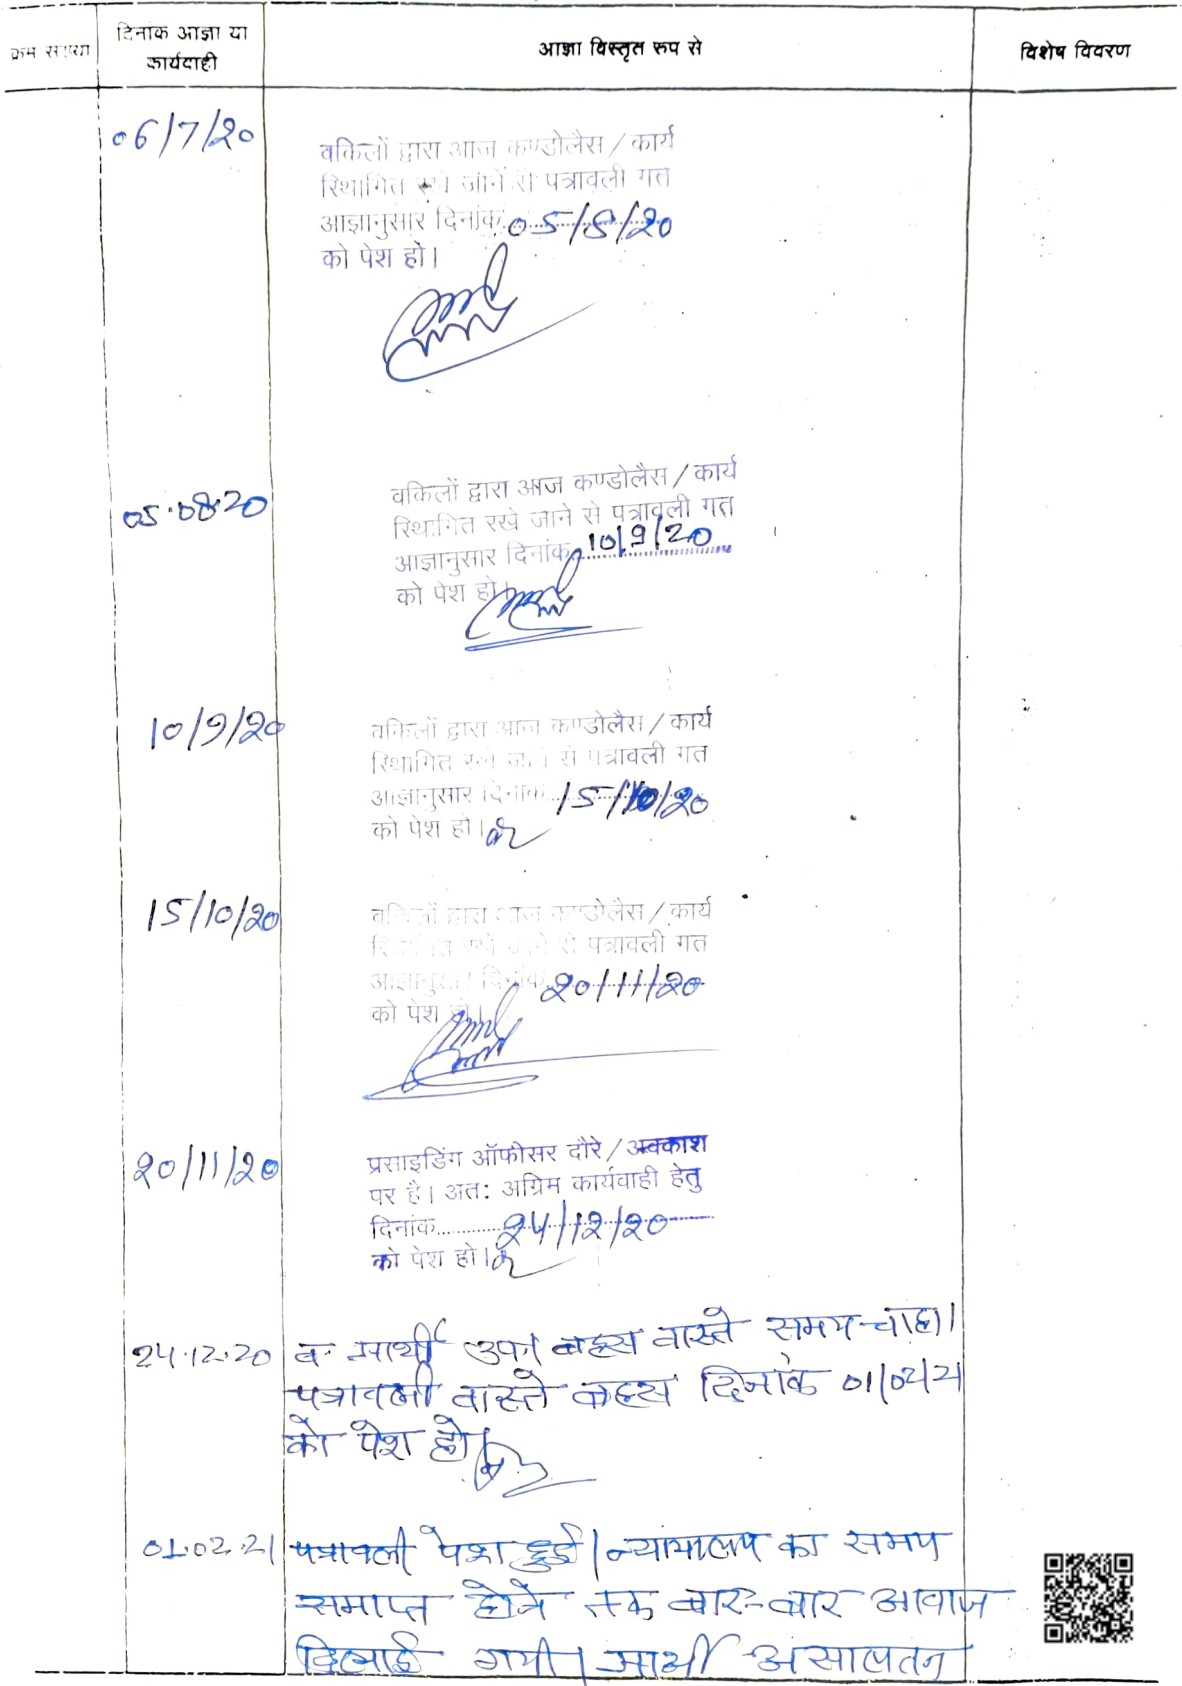 क्रम संख्या
दिनांक आज्ञा या
कार्यवाही
आज्ञा विस्तृत रूप से
विशेष विवरण
06/7/20
वकिलों द्वारा आज कण्डोलैस / कार्य
स्थिागित रखे जाने से पत्रावली गत
आज्ञानुसार दिनांक 05/8/20
को पेश हो।
05.08.20
वकिलों द्वारा आज कण्डोलैस / कार्य
स्थिागित रखे जाने से पत्रावली गत
आज्ञानुसार दिनांक 10/9/20
को पेश हो।
10/9/20
वकिलों द्वारा आज कण्डोलैस / कार्य
स्थिागित रखे जाने से पत्रावली गत
आज्ञानुसार दिनांक 15/10/20
को पेश हो।
15/10/20
वकिलों द्वारा आज कण्डोलैस / कार्य
स्थिागित रखे जाने से पत्रावली गत
आज्ञानुसार दिनांक 20/11/20
को पेश हो।
20/11/20
प्रसाइडिंग ऑफीसर दौरे / अवकाश
पर है। अत: अग्रिम कार्यवाही हेतु
दिनांक 24/12/20
को पेश हो।
24.12.20
व. प्रार्थी उप। बहस वास्ते समय चाहा।
पत्रावली वास्ते बहस दिनांक 01/02/21
को पेश हो।
01.02.21
पत्रावली पेश हुई। न्यायालय का समय
समाप्त होने तक बार-बार आवाज
दिलाई गयी। प्रार्थी असालतन